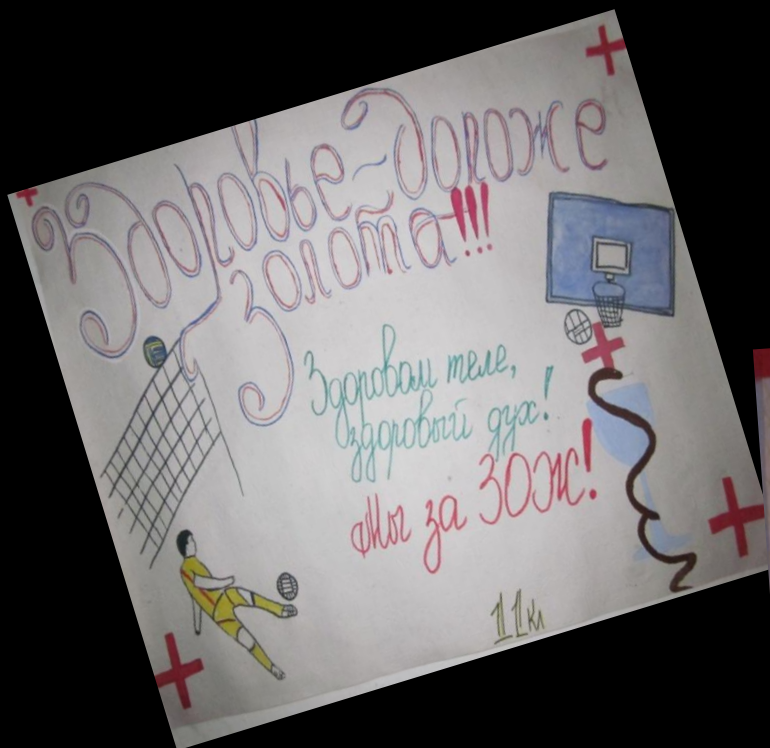 Здоровье - дороже
золота!!!
Здоровом теле,
здоровый дух!
Мы за ЗОЖ!
11кл